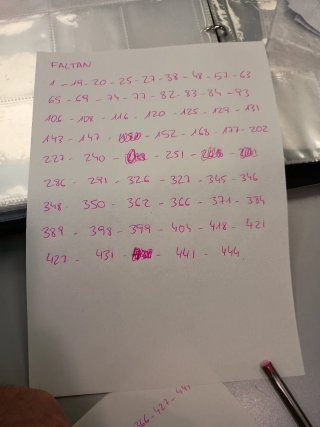 FALTAN
1 - 19 - 20 - 25 - 27 - 38 - 48 - 57 - 63
65 - 69 - 74 - 77 - 82 - 83 - 84 - 93
106 - 108 - 116 - 120 - 125 - 129 - 131
143 - 147 - 152 - 168 - 177 - 202
227 - 240 - 251 -
286 - 291 - 326 - 327 - 345 - 346
348 - 350 - 362 - 366 - 371 - 384
389 - 398 - 399 - 404 - 418 - 421
427 - 431 - 441 - 444
266 - 427 - 441